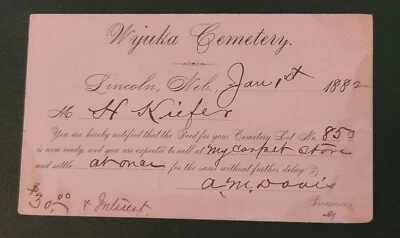 Wyuka Cemetery.
Lincoln, Neb., Jan 1st 1882
M H Kiefer
You are hereby notified that the Deed for your Cemetery Lot No. 850
is now ready, and you are expected to call at my carpet store
and settle at once for the same without further delay.
A. M. Davis
Treasurer.
$30.00 & Interest